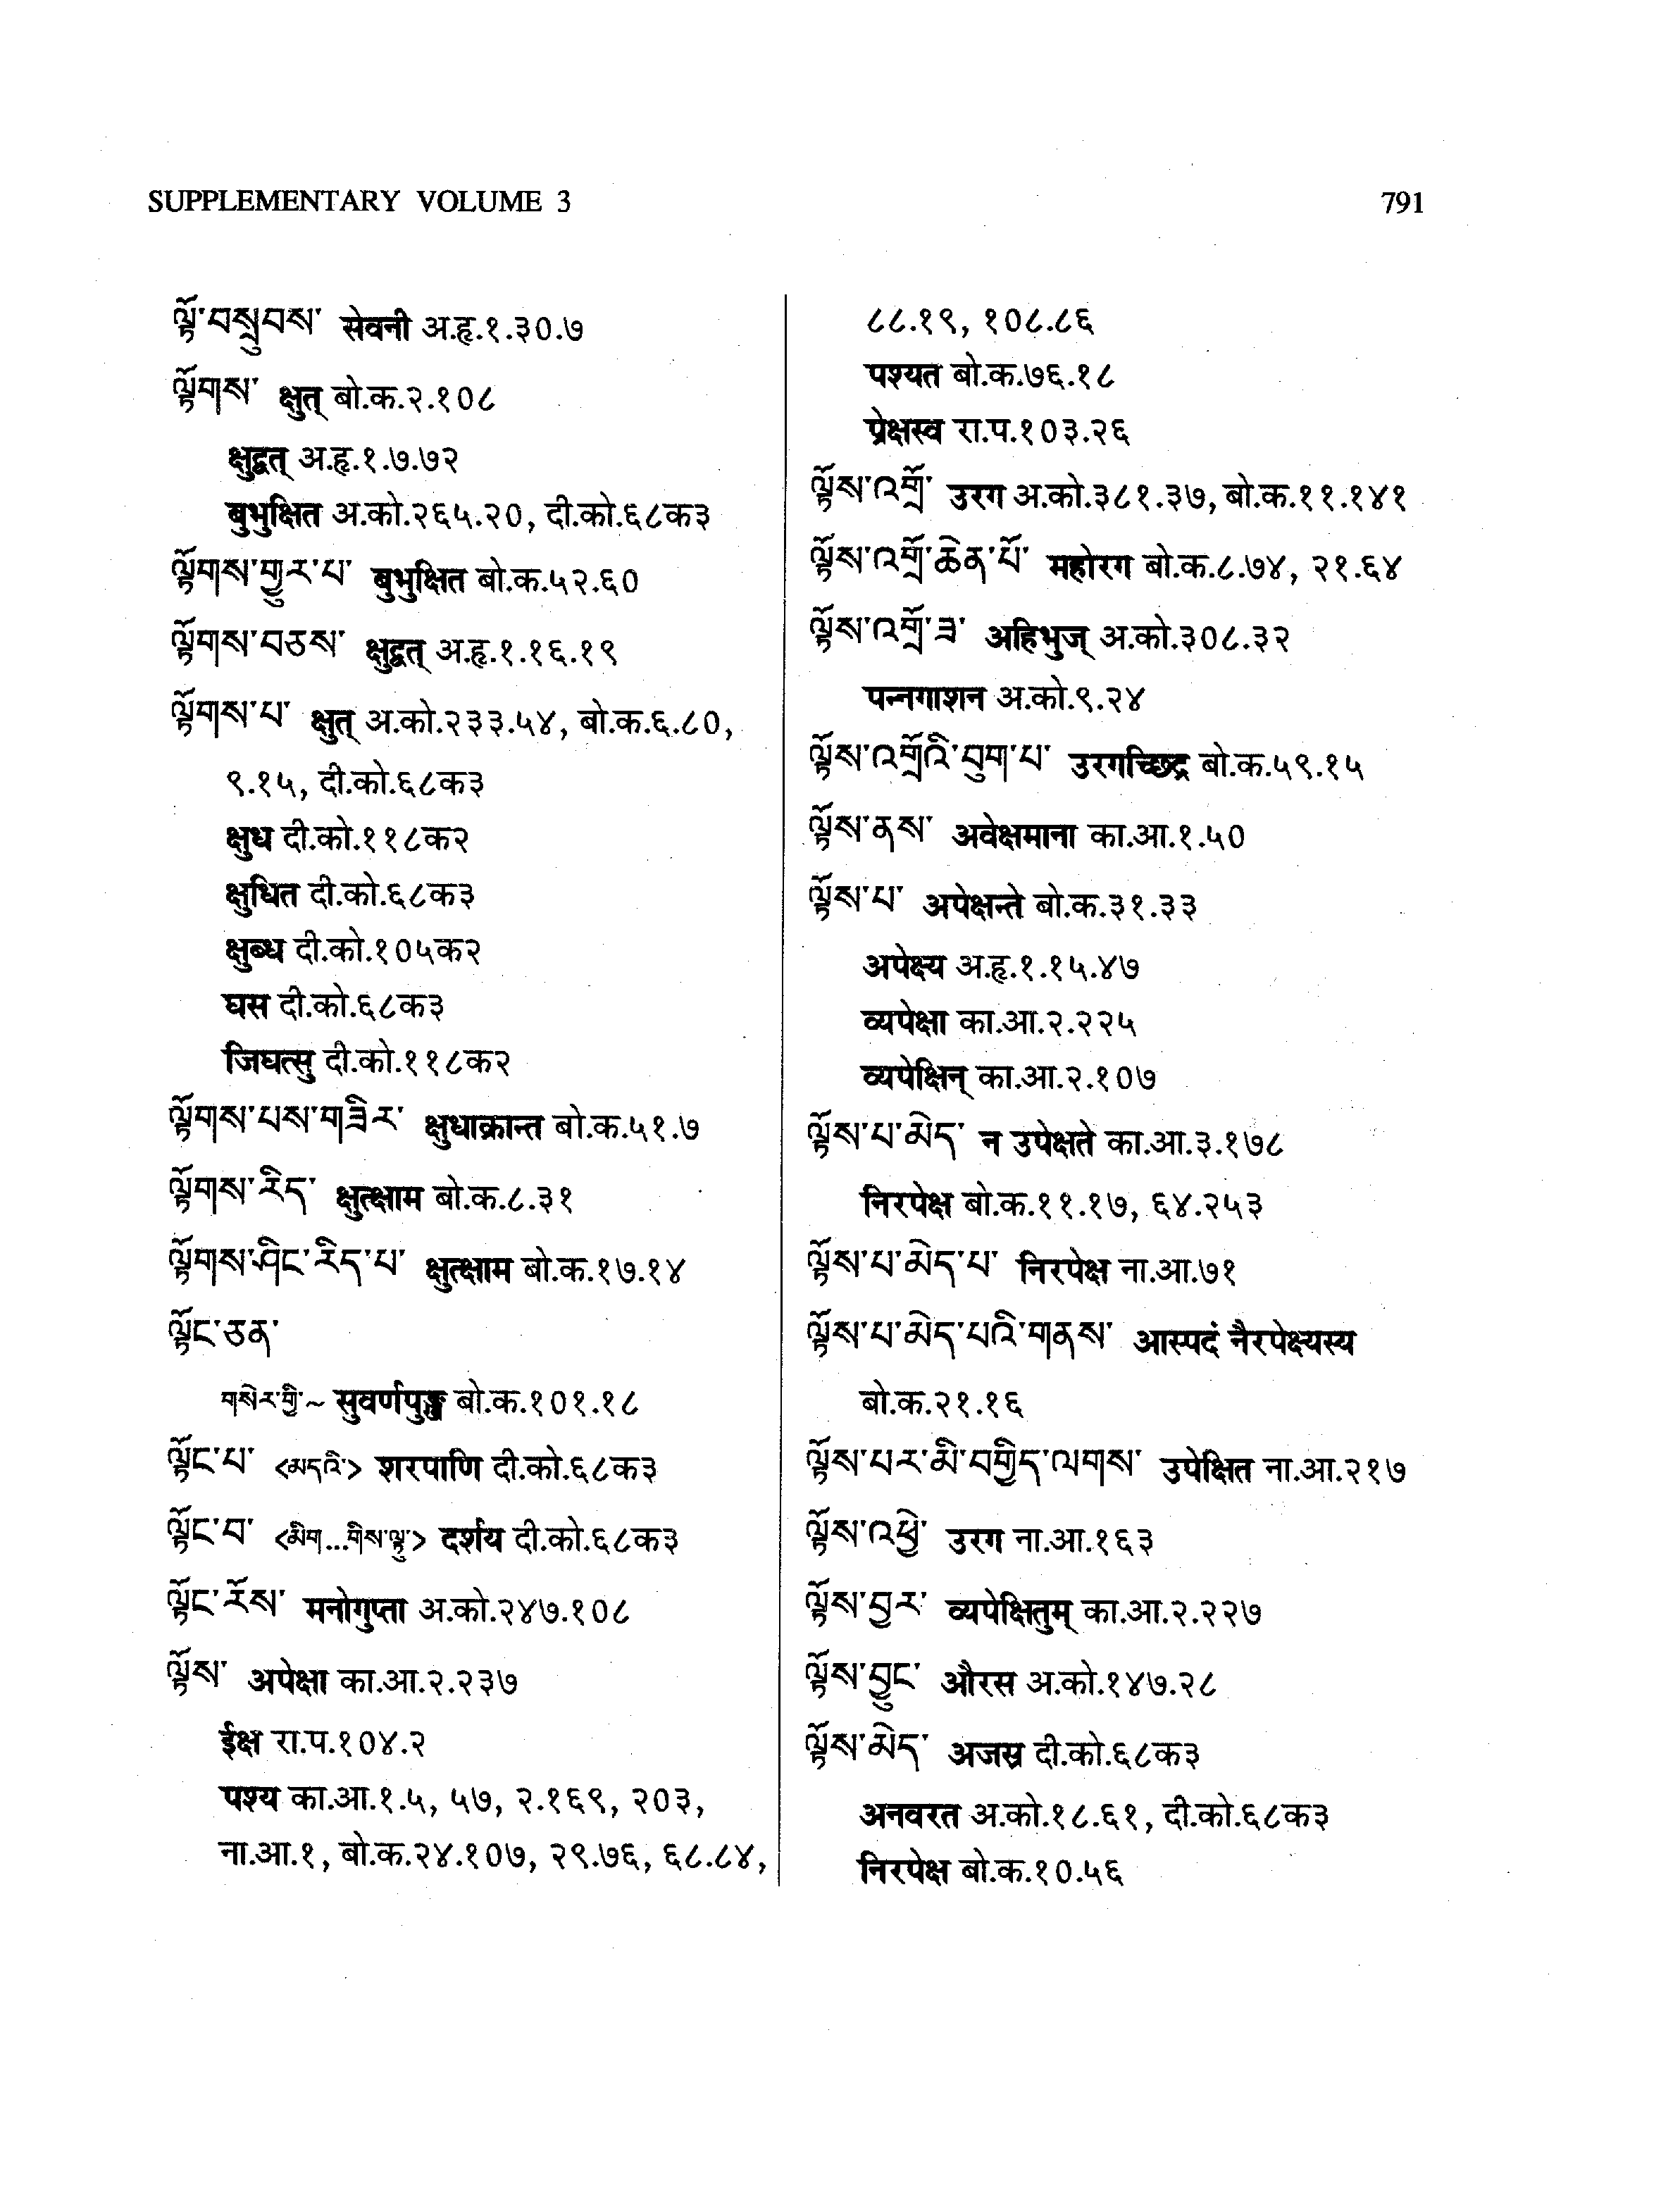 SUPPLEMENTARY VOLUME 3 791
ལྟོ་བསྲུབས་ सेवनी अ.हृ.१.३०.७
ལྟོགས་ क्षुत् बो.क.२.१०८
क्षुद्वत् अ.हृ.१.७.७२
बुभुक्षित अ.को.२६५.२०, दी.को.६८क३
ལྟོགས་གྱུར་པ་ बुभुक्षित बो.क.५२.६०
ལྟོགས་བཅས་ क्षुद्वत् अ.हृ.१.१६.१९
ལྟོགས་པ་ क्षुत् अ.को.२३३.५४, बो.क.६.८०,
९.१५, दी.को.६८क३
क्षुध दी.को.११८क२
क्षुधित दी.को.६८क३
क्षुब्ध दी.को.१०५क२
घस दी.को.६८क३
जिघत्सु दी.को.११८क२
ལྟོགས་པས་གཟིར་ क्षुधाक्रान्त बो.क.५१.७
ལྟོགས་རིད་ क्षुत्क्षाम बो.क.८.३१
ལྟོགས་ཤིང་རིད་པ་ क्षुत्क्षाम बो.क.१७.१४
ལྟོང་ཅན་
གསེར་གྱི་~ सुवर्णपुङ्ख बो.क.१०१.१८
ལྟོང་པ་ <མདའི་> शरपाणि दी.को.६८क३
ལྟོང་བ་ <མིག...གིས་ལྟ་> दर्शय दी.को.६८क३
ལྟོང་རོས་ मनोगुप्ता अ.को.२४७.१०८
ལྟོས་ अपेक्षा का.आ.२.२३७
ईक्ष रा.प.१०४.२
पश्य का.आ.१.५, ५७, २.१६९, २०३,
ना.आ.१, बो.क.२४.१०७, २९.७६, ६८.८४,
८८.१९, १०८.८६
पश्यत बो.क.७६.१८
प्रेक्षस्व रा.प.१०३.२६
ལྟོས་འགྲོ་ उरग अ.को.३८१.३७, बो.क.११.१४१
ལྟོས་འགྲོ་ཆེན་པོ་ महोरग बो.क.८.७४, २१.६४
ལྟོས་འགྲོ་ཟ་ अहिभुज् अ.को.३०८.३२
पन्नगाशन अ.को.९.२४
ལྟོས་འགྲོའི་བུག་པ་ उरगच्छिद्र बो.क.५९.१५
ལྟོས་ནས་ अवेक्षमाना का.आ.१.५०
ལྟོས་པ་ अपेक्षन्ते बो.क.३१.३३
अपेक्ष्य अ.हृ.१.१५.४७
व्यपेक्षा का.आ.२.२२५
व्यपेक्षिन् का.आ.२.१०७
ལྟོས་པ་མེད་ न उपेक्षते का.आ.३.१७८
निरपेक्ष बो.क.११.१७, ६४.२५३
ལྟོས་པ་མེད་པ་ निरपेक्ष ना.आ.७१
ལྟོས་པ་མེད་པའི་གནས་ आस्पदं नैरपेक्ष्यस्य
बो.क.२१.१६
ལྟོས་པར་མི་བགྱིད་ལགས་ उपेक्षित ना.आ.२१७
ལྟོས་འཕྱེ་ उरग ना.आ.१६३
ལྟོས་བྱར་ व्यपेक्षितुम् का.आ.२.२२७
ལྟོས་བྱུང་ औरस अ.को.१४७.२८
ལྟོས་མེད་ अजस्र दी.को.६८क३
अनवरत अ.को.१८.६१, दी.को.६८क३
निरपेक्ष बो.क.१०.५६